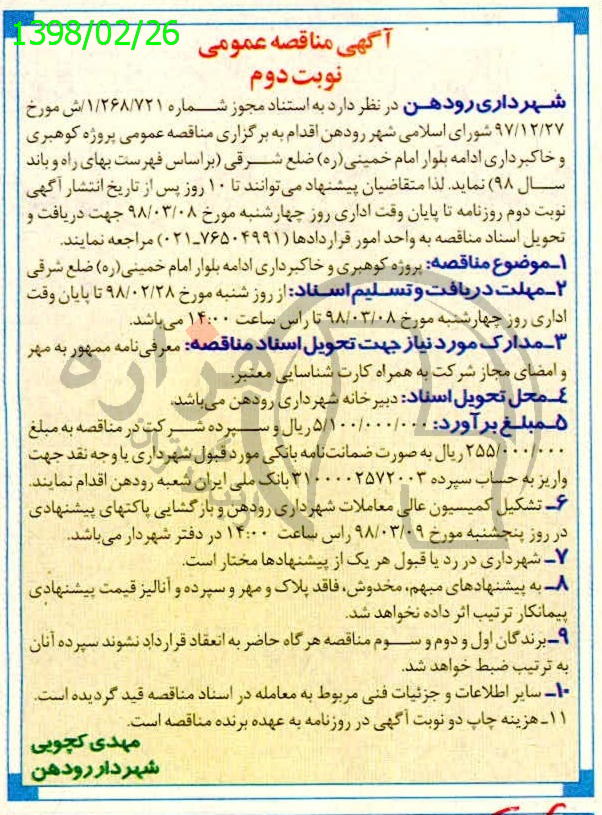 1398/02/26
آگهی مناقصه عمومی
نوبت دوم
شهرداری رودهن در نظر دارد به استناد مجوز شماره ۱/۲۶۸/۷۲۱/ش مورخ
۹۷/۱۲/۲۷ شورای اسلامی شهر رودهن اقدام به برگزاری مناقصه عمومی پروژه کوهبری
و خاکبرداری ادامه بلوار امام خمینی(ره) ضلع شرقی (براساس فهرست بهای راه و باند
سال ۹۸) نماید. لذا متقاضیان پیشنهاد می‌توانند تا ۱۰ روز پس از تاریخ انتشار آگهی
نوبت دوم روزنامه تا پایان وقت اداری روز چهارشنبه مورخ ۹۸/۰۳/۰۸ جهت دریافت و
تحویل اسناد مناقصه به واحد امور قراردادها (۷۶۵۰۴۹۹۱-۰۲۱) مراجعه نمایند.
۱ـ موضوع مناقصه: پروژه کوهبری و خاکبرداری ادامه بلوار امام خمینی(ره) ضلع شرقی
۲ـ مهلت دریافت و تسلیم اسناد: از روز شنبه مورخ ۹۸/۰۲/۲۸ تا پایان وقت
اداری روز چهارشنبه مورخ ۹۸/۰۳/۰۸ تا راس ساعت ۱۴:۰۰ می‌باشد.
۳ـ مدارک مورد نیاز جهت تحویل اسناد مناقصه: معرفی‌نامه ممهور به مهر
و امضای مجاز شرکت به همراه کارت شناسایی معتبر.
٤ـ محل تحویل اسناد: دبیرخانه شهرداری رودهن می‌باشد.
۵ـ مبلغ برآورد: ۵/۱۰۰/۰۰۰/۰۰۰ ریال و سپرده شرکت در مناقصه به مبلغ
۲۵۵/۰۰۰/۰۰۰ ریال به صورت ضمانت‌نامه بانکی مورد قبول شهرداری یا وجه نقد جهت
واریز به حساب سپرده ۳۱۰۰۰۰۲۵۷۲۰۰۳ بانک ملی ایران شعبه رودهن اقدام نمایند.
۶ـ تشکیل کمیسیون عالی معاملات شهرداری رودهن و بازگشایی پاکتهای پیشنهادی
در روز پنجشنبه مورخ ۹۸/۰۳/۰۹ راس ساعت ۱۴:۰۰ در دفتر شهردار می‌باشد.
۷ـ شهرداری در رد یا قبول هر یک از پیشنهادها مختار است.
۸ـ به پیشنهادهای مبهم، مخدوش، فاقد پلاک و مهر و سپرده و آنالیز قیمت پیشنهادی
پیمانکار ترتیب اثر داده نخواهد شد.
۹ـ برندگان اول و دوم و سوم مناقصه هرگاه حاضر به انعقاد قرارداد نشوند سپرده آنان
به ترتیب ضبط خواهد شد.
۱۰ـ سایر اطلاعات و جزئیات فنی مربوط به معامله در اسناد مناقصه قید گردیده است.
۱۱ـ هزینه چاپ دو نوبت آگهی در روزنامه به عهده برنده مناقصه است.
مهدی کچویی
شهردار رودهن